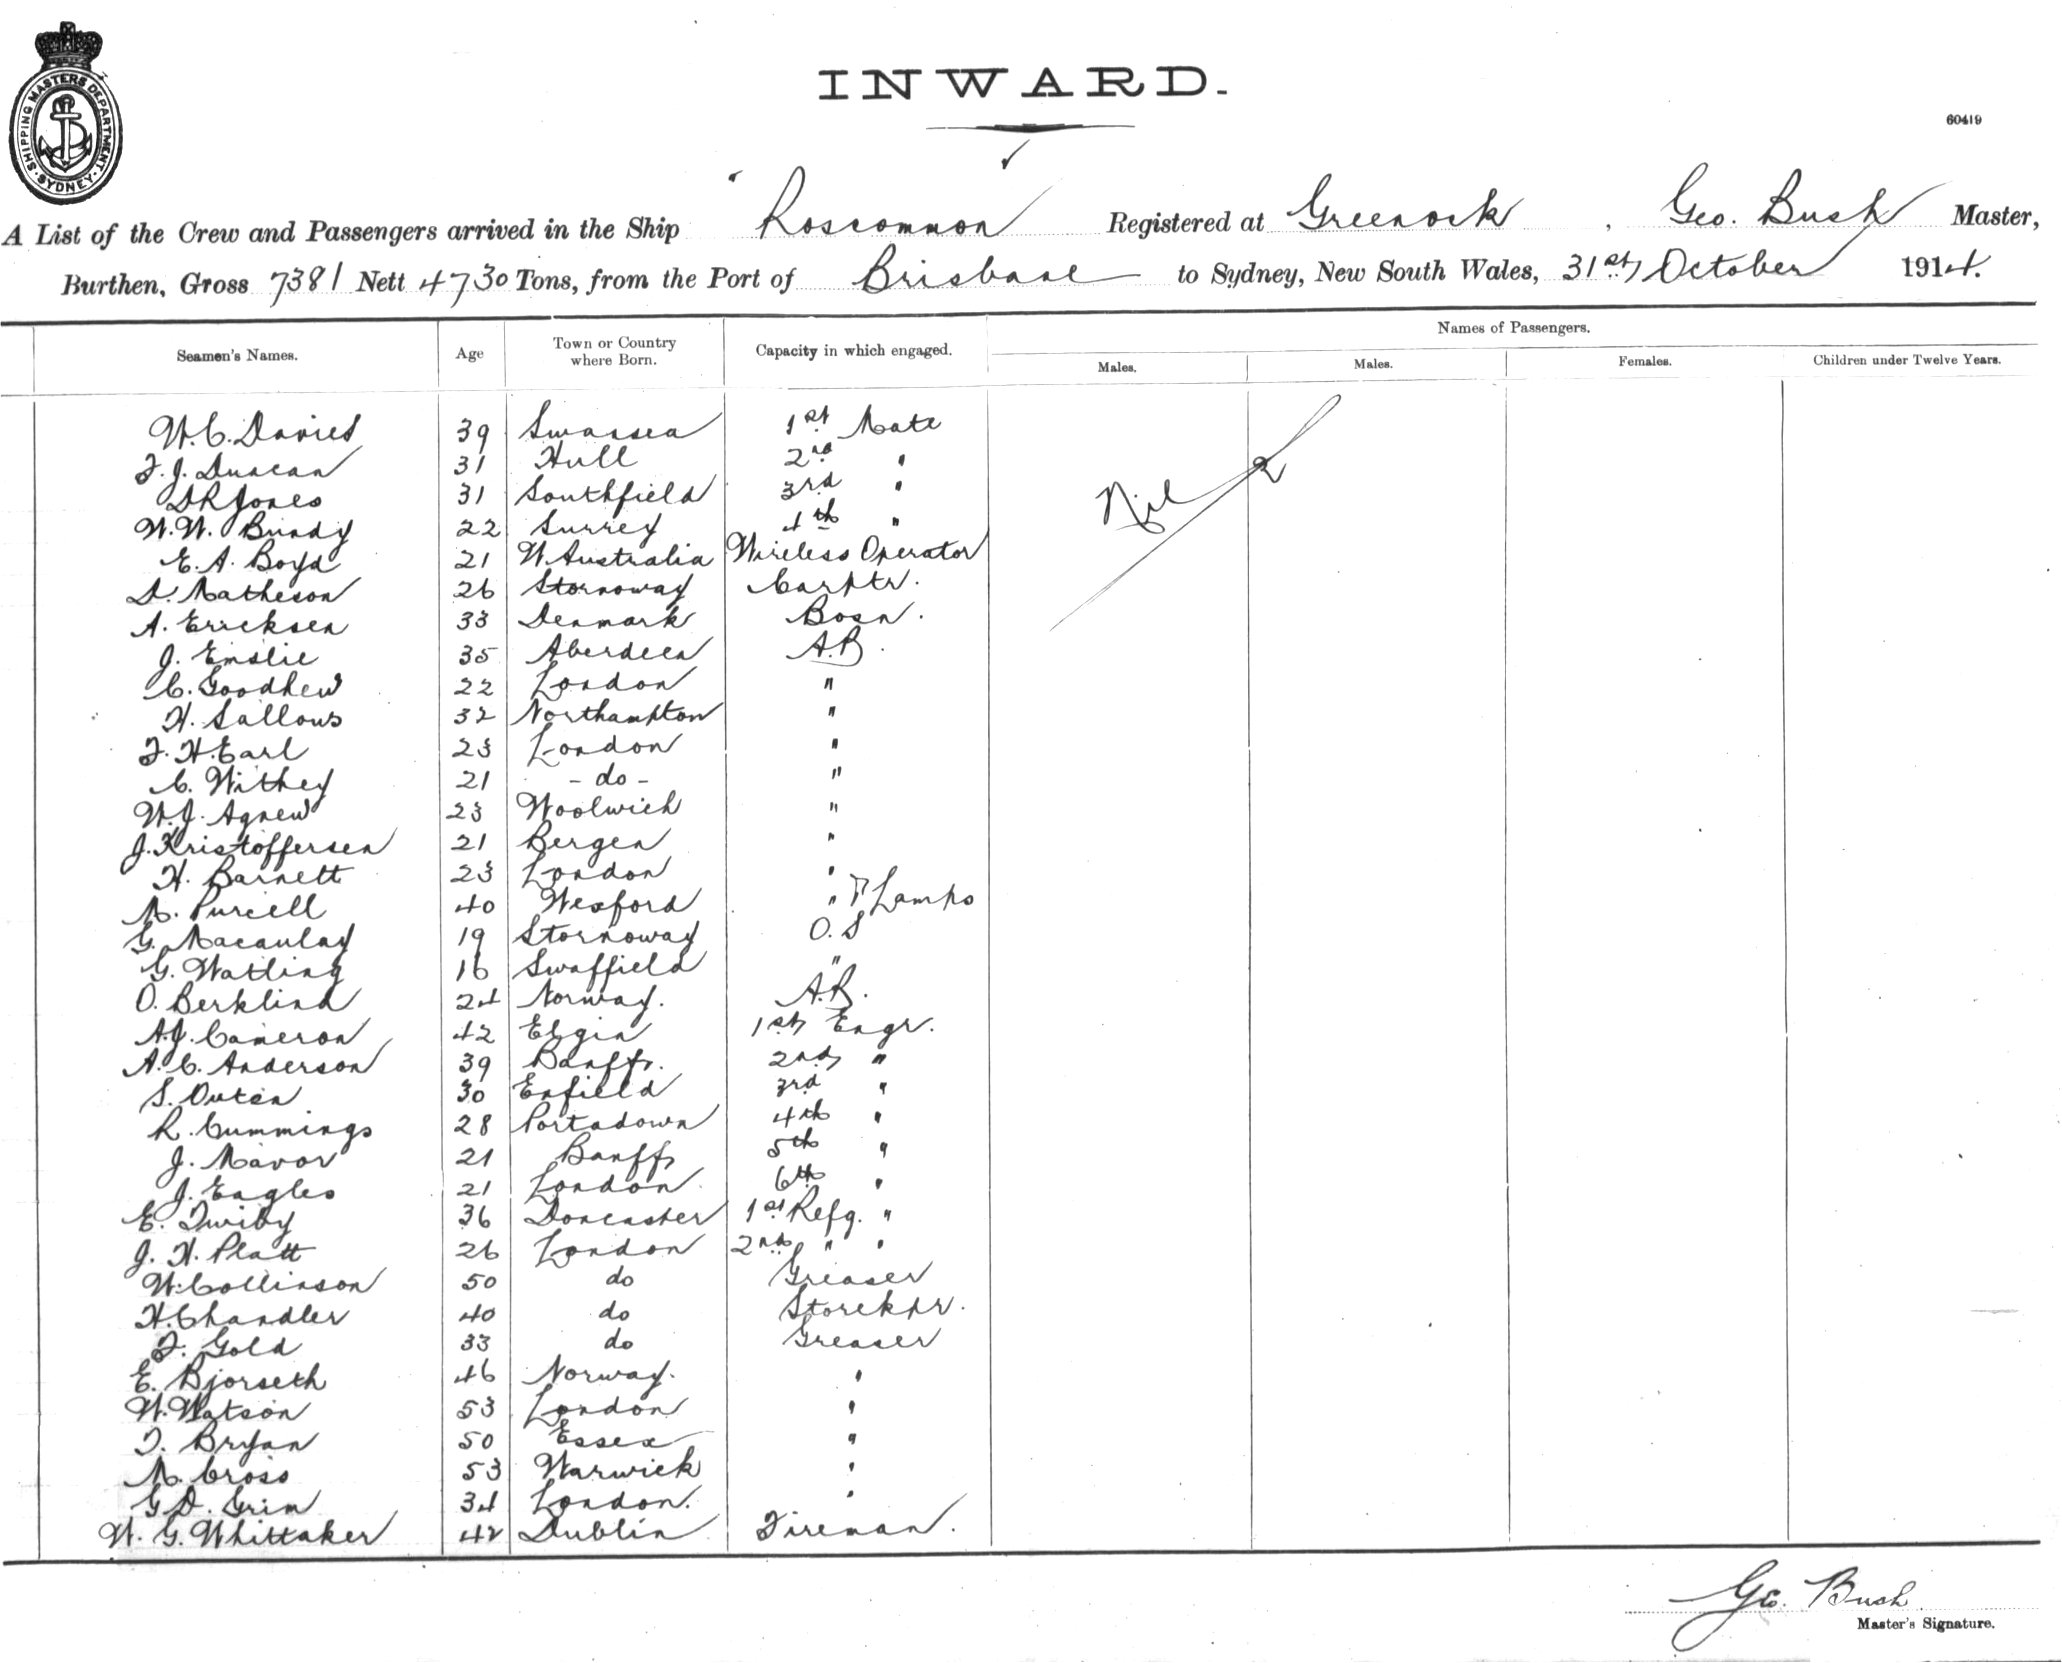 SHIPPING MASTERS DEPARTMENT. SYDNEY
INWARD.
60419
A List of the Crew and Passengers arrived in the Ship "Roscommon Registered at Greenock, Geo. Bush Master,
Burthen, Gross 7381 Nett 4730 Tons, from the Port of Brisbane to Sydney, New South Wales, 31st October 1914.
Names of Passengers.
Seamen's Names. Age Town or Country where Born. Capacity in which engaged. Males. Males. Females. Children under Twelve Years.
Nil
W.C. Davies 39 Swansea 1st Mate
F. J. Duncan 31 Hull 2nd "
D R Jones 31 Southfield 3rd "
W. W. Bundy 22 Surrey 4th "
E. A. Boyd 21 W. Australia Wireless Operator
D. Matheson 26 Stornoway Carptr.
A. Ericksen 33 Denmark Bosn.
J. Emslie 35 Aberdeen A.B.
C. Goodhew 22 London "
H. Sallows 32 Northampton "
F. H. Earl 23 London "
C. Withey 21 - do - "
W. J. Agnew 23 Woolwich "
J. Kristoffersen 21 Bergen "
H. Barnett 23 London "
M. Purcell 40 Wexford " & Lamps
G. Macaulay 19 Stornoway O. S
G. Watling 16 Swaffield "
O. Berklind 24 Norway. A.B.
A.J. Cameron 42 Elgin 1st Engr.
A. C. Anderson 39 Banff. 2nd "
S. Outen 30 Enfield 3rd "
R. Cummings 28 Portadown 4th "
J. Mavor 21 Banff 5th "
J. Eagles 21 London. 6th "
E. Twiby 36 Doncaster 1st Refg. "
J. H. Platt 26 London 2nd " "
W. Collinson 50 do Greaser
H. Chandler 40 do Storekpr.
F. Gold 33 do Greaser
E. Bjorseth 46 Norway. "
W. Watson 53 London "
T. Bryan 50 Essex "
M. Cross 53 Warwick "
G D. Grim 34 London. "
W. G. Whittaker 42 Dublin Fireman.
Geo. Bush
Master's Signature.